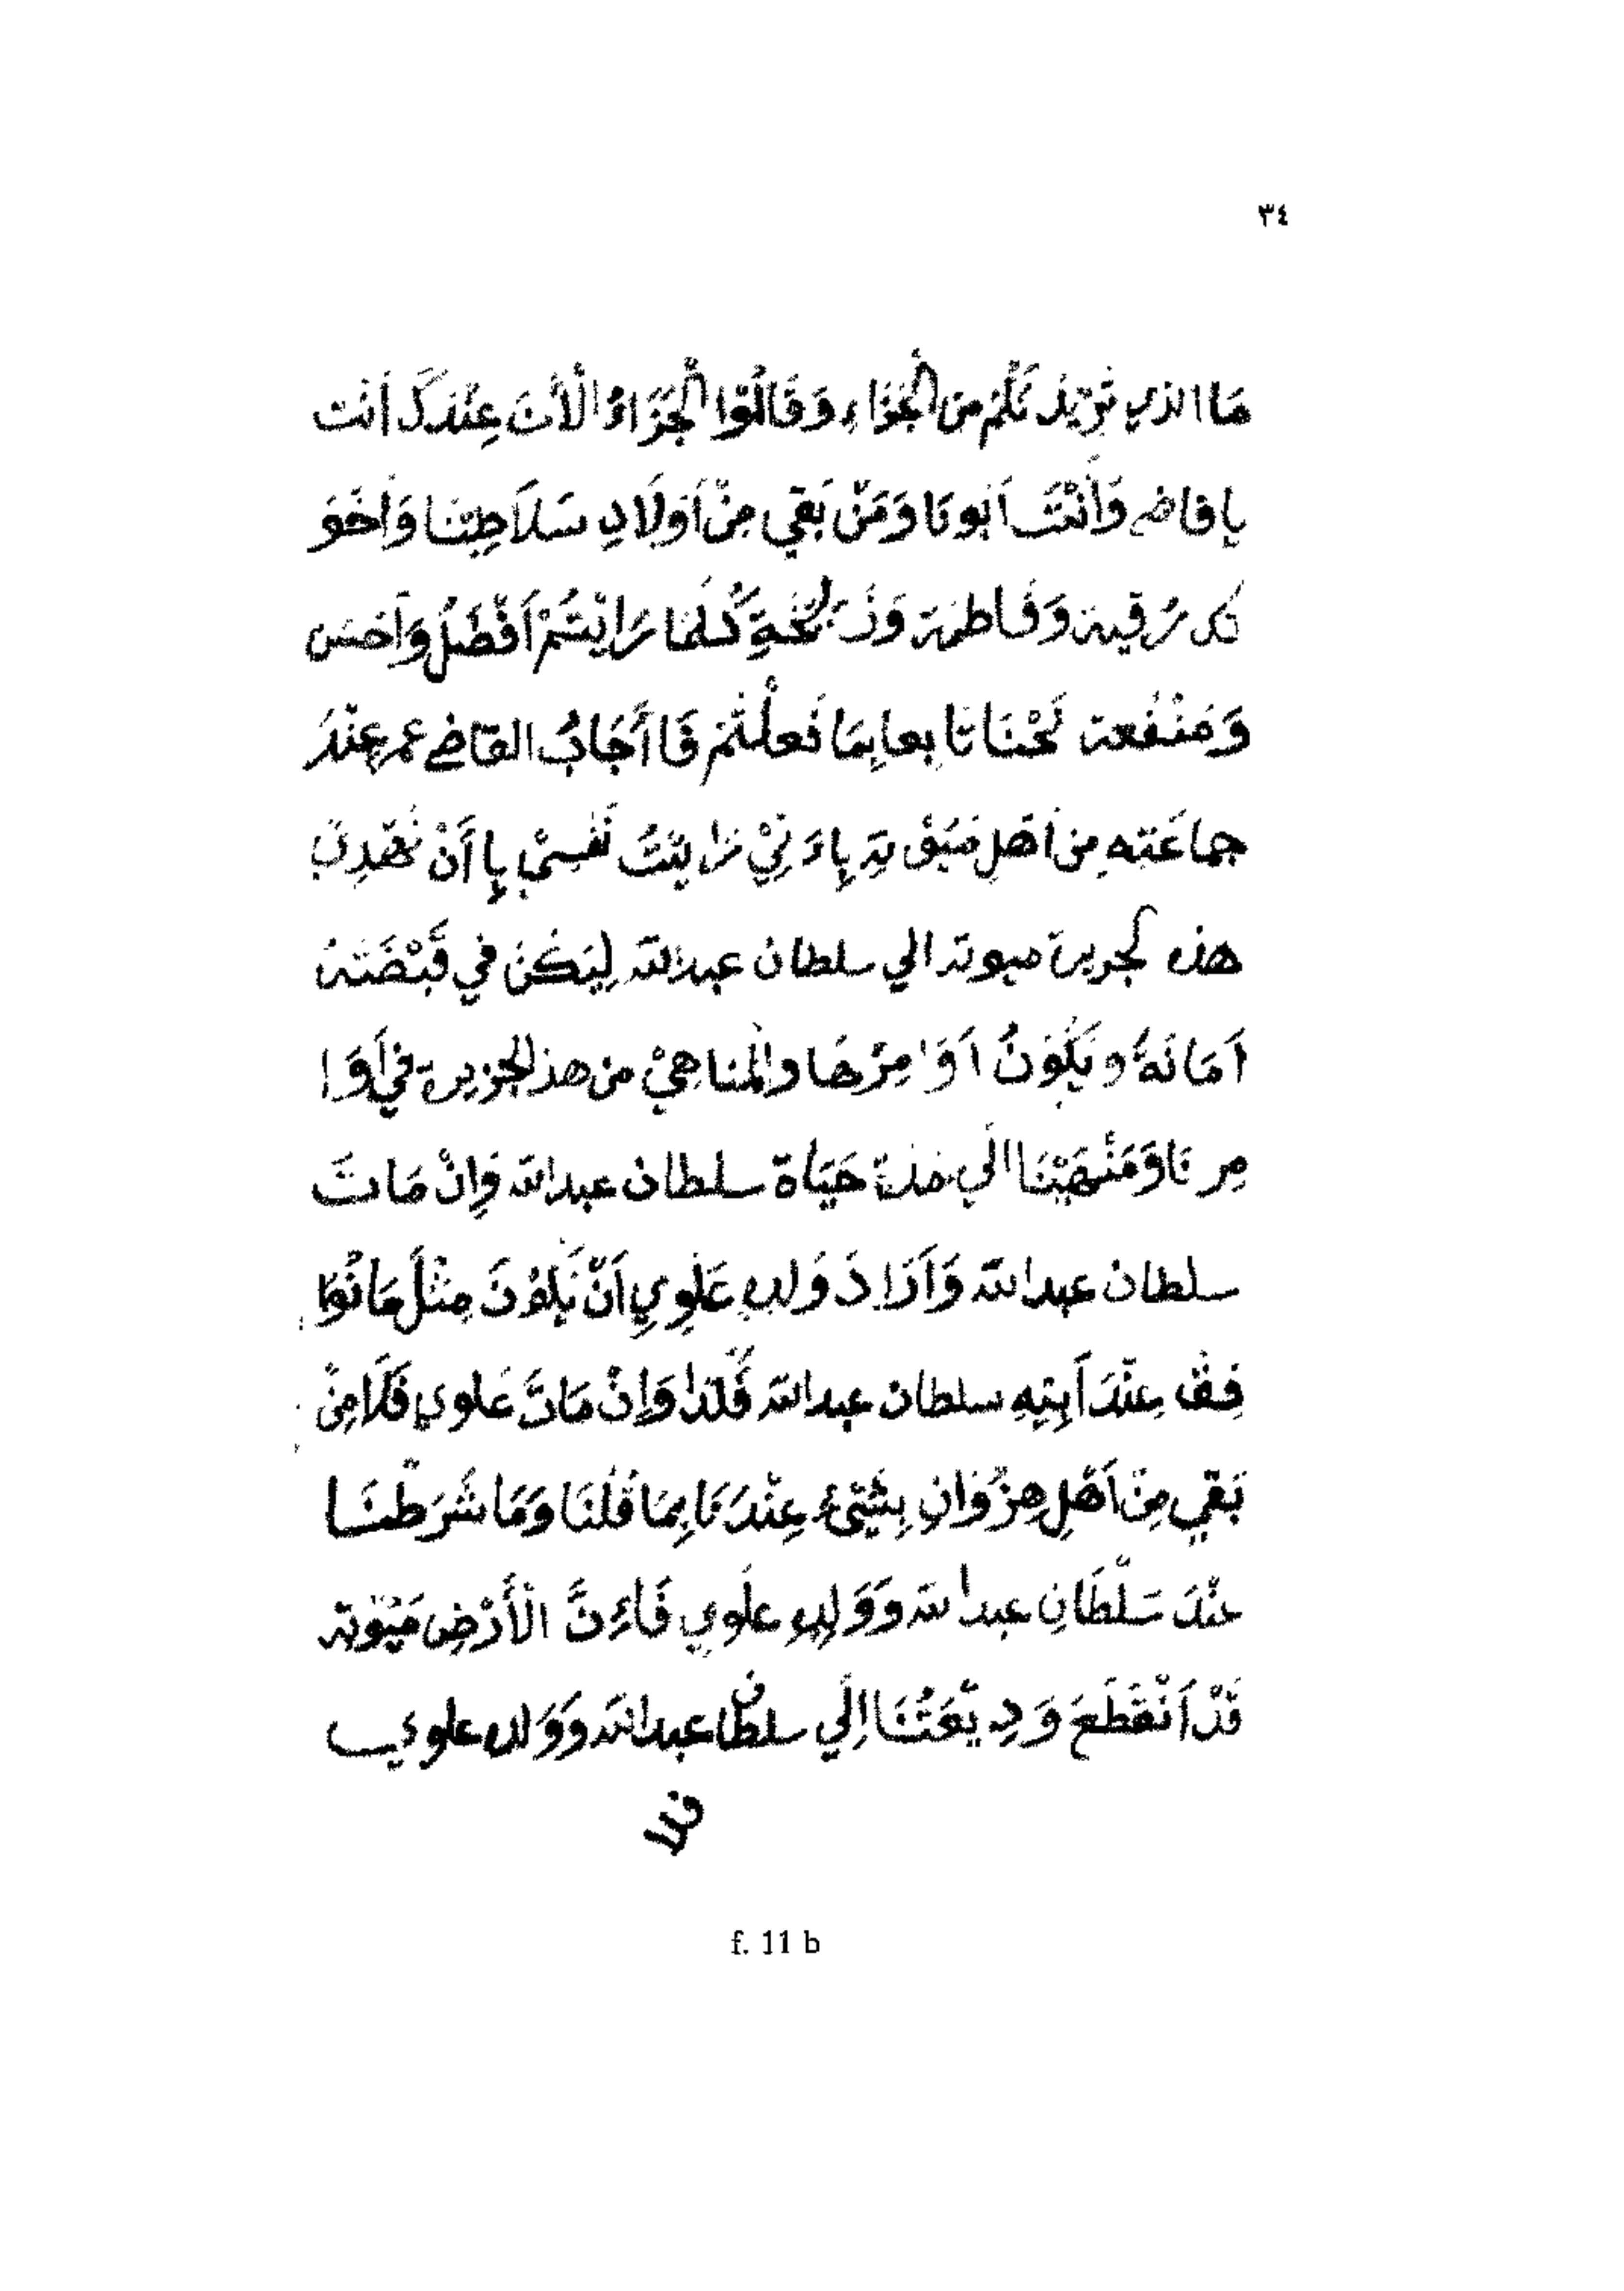 ٣٤
مَا الذي تُرِيْدُ لَكُمْ مِنَ الْجَزَاءِ وَقَالُوْا الْجَزَاءُ الْأَنَ عِنْدَكَ أَنْتَ
يا قاضي وَأَنْتَ اَبُونَا وَمَنْ بَقِي مِنْ اَوْلَادِ سَلَاطِيْنَا وَاَخَوَ
تك رُقية وَفَاطمة وَذُرِّيَّةِ كُلَّمَا رَايْتُمْ اَفْضَلُ وَاَحْسَن
وَمَنْفَعة نَحْنَا تابعا بِمَا فَعلْتُمْ فَا أَجَابُ القاضي عمر عِنْدَ
جماعَتِه مِن اَهلِ مَيُوْتَة بِاءَنِّيْ رَايْتُ نَفْسِيْ بِا أَنْ نُهْدِيَ
هذه لجريرة ميوتة الي سلطان عبدالله لِيَكُنْ في قَبْضَتَهُ
اَمَانَةُ وَيَكُوْنُ اَوَامِرُهَا وَالْمناهِيْ من هذ الجزيرة فِيْ اَوَا
مِرنَا وَمَنْهَيْنَا الَي مُدة حَيَاة سلطان عبدالله وَاِنْ مَاتَ
سلطان عبدالله وَاَرَادَ وَلده عَلَوِيِ اَنْ يَكُوْنَ مِثْلَ مَا نُوَا
فِق عِنْدَ اَبِيْهِ سلطان عبدالله فَلَهُ وَاِنْ مَاتَ عَلوي فَلَا مِنْ
بَقِي مِنْ اَهْلِ هِنْزُوَانِ بِشَيْءٍ عِنْدَنَا بِمَا قُلْنَا وَمَا شَرَطْنَا
عِنْدَ سَلْطَانِ عبدالله وَوَلدِهِ علَوي فَاءِنَّ الْأَرْضِ مَيُوْتة
قَدْ اَنْقَطَعَ وَدِيْعَتُنَا اِلَي سلطان عبدالله وَوَلده علوي
f. 11 b